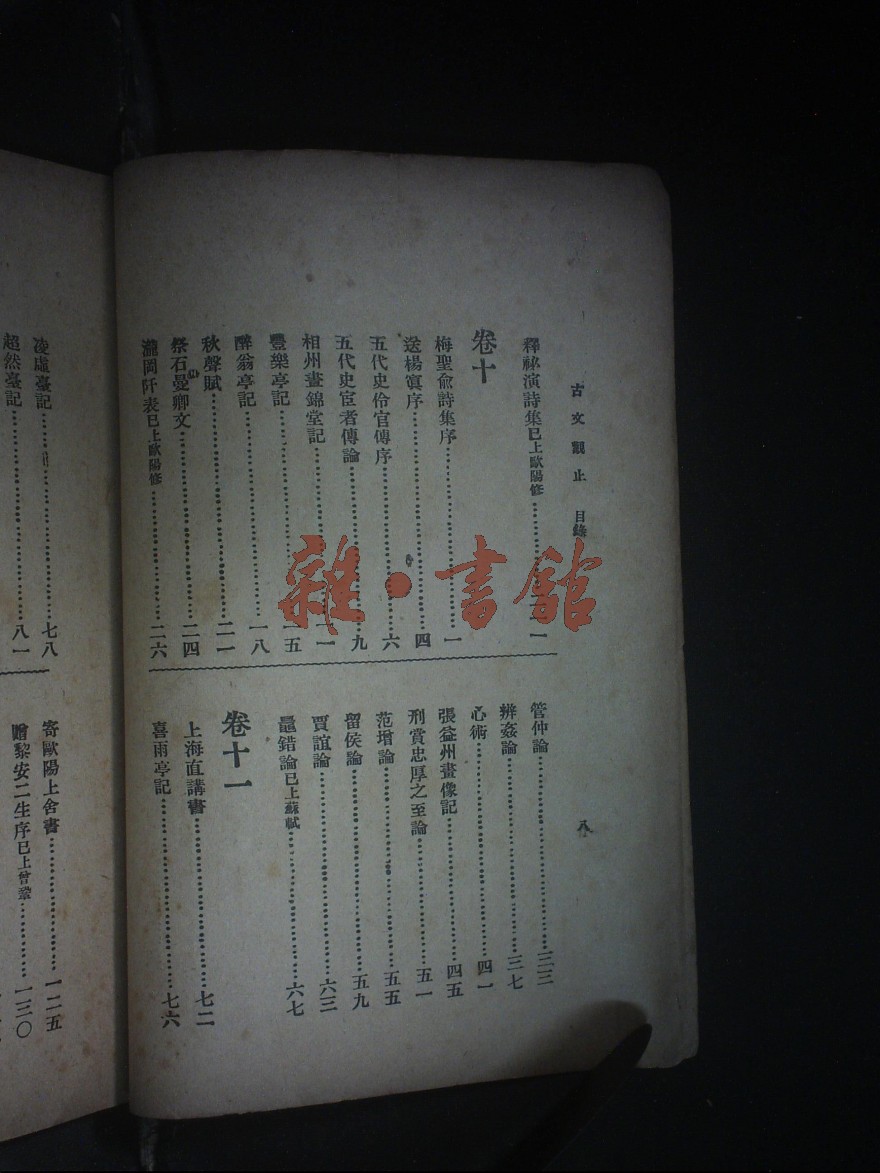 古文觀止 目錄
八
釋祕演詩集已上歐陽修
卷十
梅聖俞詩集序……一
送楊寘序……四
五代史伶官傳序……六
五代史宦者傳論……九
相州晝錦堂記
豐樂亭記……一五
醉翁亭記……一八
秋聲賦……二一
祭石曼卿文……二四
瀧岡阡表已上歐陽修……二六
管仲論……三三
辨姦論……三七
心術……四一
張益州畫像記……四五
刑賞忠厚之至論……五一
范增論……五五
留侯論……五九
賈誼論……六三
鼂錯論已上蘇軾……六七
卷十一
上海直講書……七二
喜雨亭記……七六
凌虛臺記……七八
超然臺記……八一
寄歐陽上舍書……一二五
贈黎安二生序已上曾鞏……一三〇
雜·書館